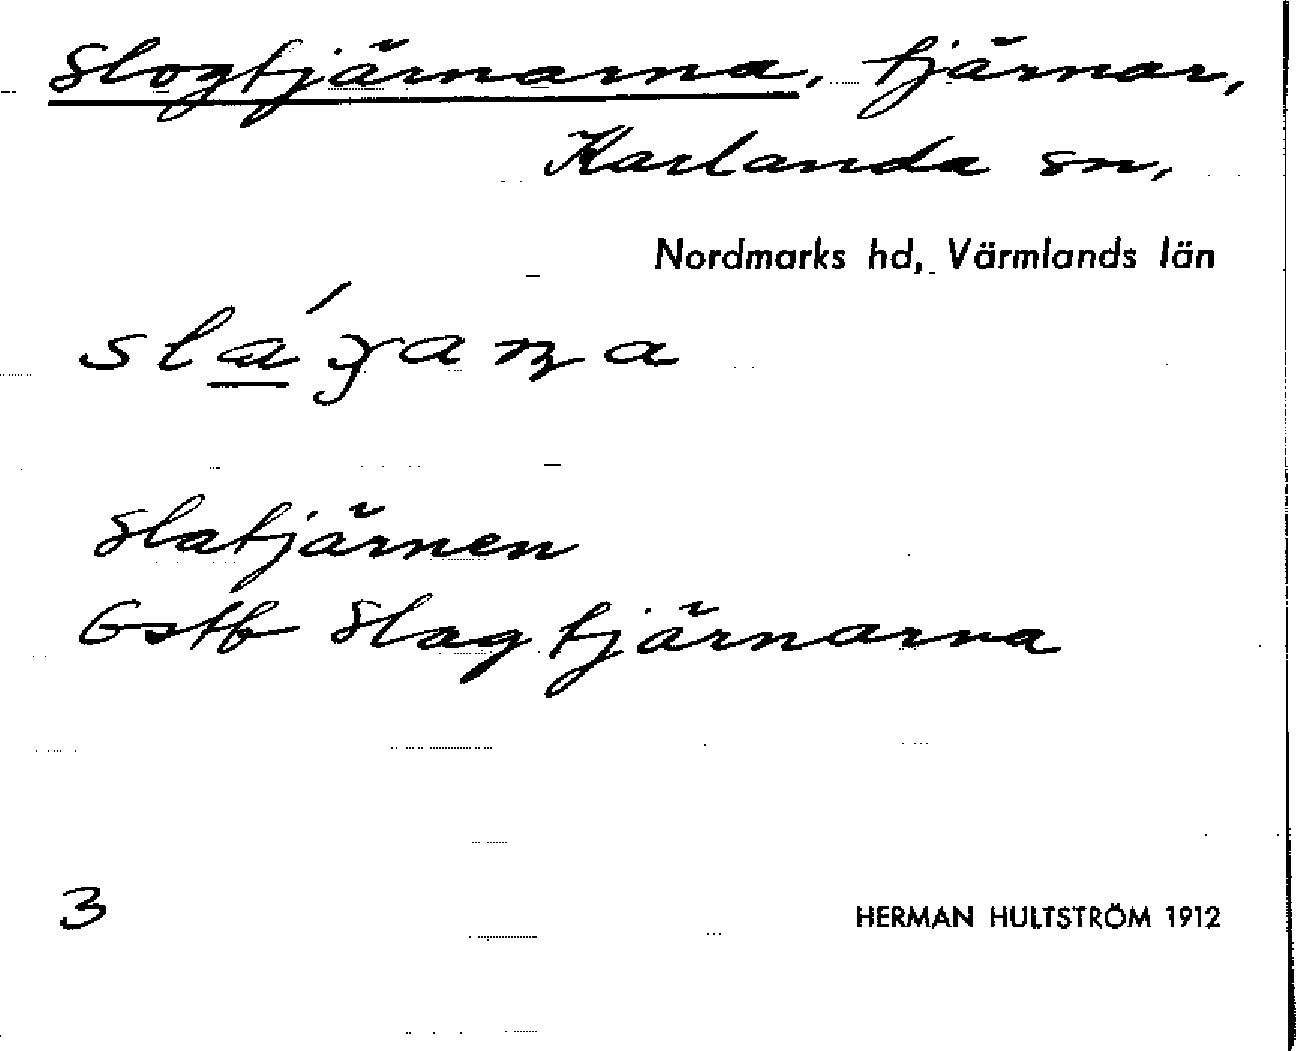 Slogtjärnarna, tjärnar,
Karlanda sn,
Nordmarks hd, Värmlands län
Slatjärnen
Gstb Slagtjärnarna
3
HERMAN HULTSTRÖM 1912